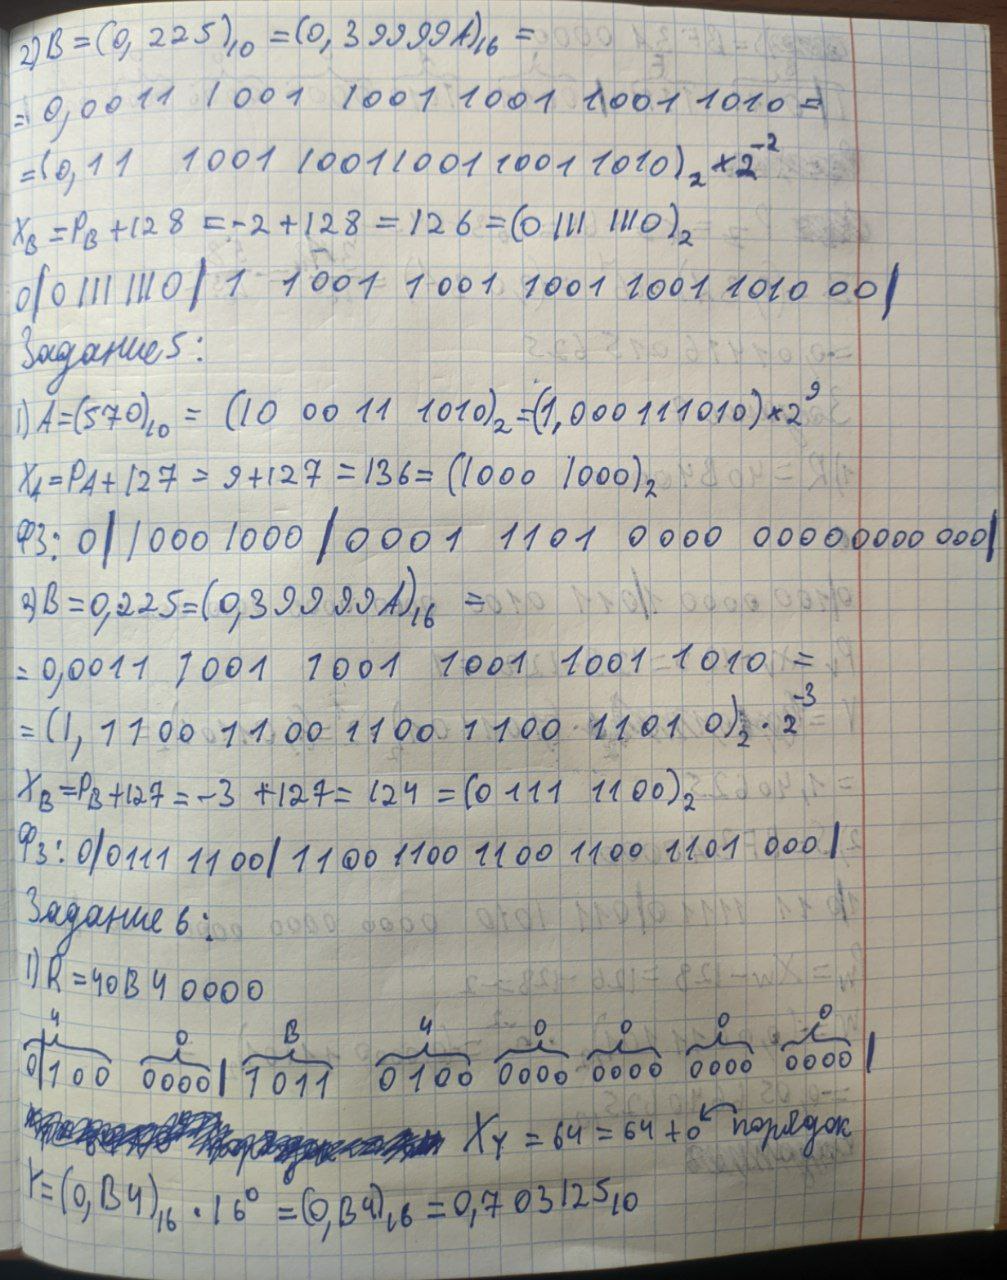 2) B = (0,225)₁₀ = (0,39999A)₁₆ =
= 0,0011 1001 1001 1001 1001 1010 =
= (0,11 1001 1001 1001 1001 1010)₂ × 2⁻²
X_B = P_B + 128 = -2 + 128 = 126 = (0111 1110)₂
0|0111 1110|1 1001 1001 1001 1001 1010 00|
Задание 5:
1) A = (570)₁₀ = (10 0011 1010)₂ = (1,000111010) × 2⁹
X_A = P_A + 127 = 9 + 127 = 136 = (1000 1000)₂
ФЗ: 0|1000 1000|0001 1101 0000 0000 0000 000|
2) B = 0,225 = (0,39999A)₁₆ =
= 0,0011 1001 1001 1001 1001 1010 =
= (1,1100 1100 1100 1100 1101 0)₂ · 2⁻³
X_B = P_B + 127 = -3 + 127 = 124 = (0111 1100)₂
ФЗ: 0|0111 1100|1100 1100 1100 1100 1101 000|
Задание 6:
1) R = 40B40000
4 0 B 4 0 0 0 0
0|100 0000|1011 0100 0000 0000 0000 0000|
X_Y = 64 = 64 + 0 порядок
Y = (0,B4)₁₆ · 16⁰ = (0,B4)₁₆ = 0,703125₁₀